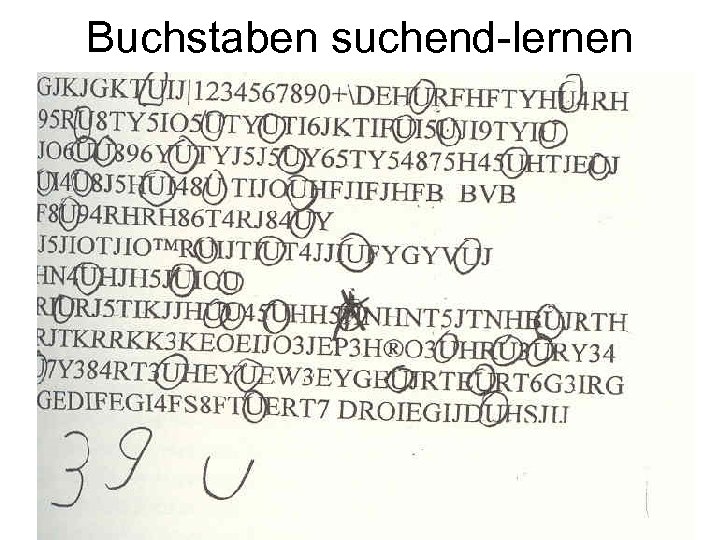 Buchstaben suchend-lernen
GJKJGKTUIJ|1234567890+\DEHURFHFTYHU4RH
95RU8TY5IO5UTYUTI6JKTIFUI5UJI9TYIU
JO6UU896YUTYJ5J5UY65TY54875H45UHTJEUJ
UI4U8J5HUI48U TIJOUHFJIFJHFB BVB
F8U94RHRH86T4RJ84UY
J5JIOTJIO™RUIJTIUT4JJIUFYGYVUJ
HN4UHJH5JUIOU
RIURJ5TIKJJHUU45UHH5 NHNT5JTNHBUJRTH
RJTKRRKK3KEOEIJO3JEP3H®O3UHRU3URY34
J7Y384RT3UHEYUEW3EYGEUJRTEURT6G3IRG
GEDIFEGI4FS8FTUERT7 DROIEGIJDUHSJIJ
39 U